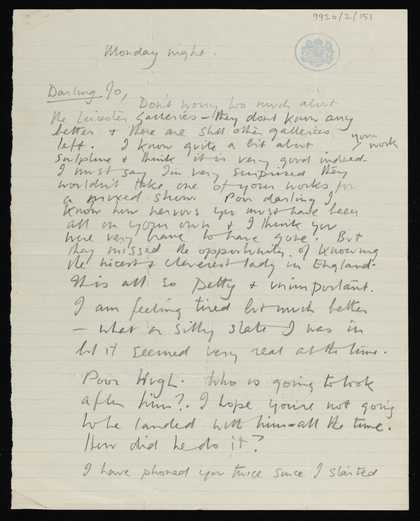 9920/2/151
Monday night.
Darling Jo,
Don't worry too much about
the Leicester Galleries – they don't know any
better & there are still other galleries
left. I know quite a bit about your work
sculpture & think it is very good indeed.
I must say I'm very surprised they
wouldn't take one of your works for
a mixed show. Poor darling I
know how nervous you must have been
all on your own & I think you
were very brave to have gone. But
they missed the opportunity of knowing
the nicest & cleverest lady in England.
This is all so petty & unimportant.
I am feeling tired but much better
– what a silly state I was in
but it seemed very real at the time.
Poor Hugh. Who is going to look
after him? I hope you're not going
to be landed with him all the time.
How did he do it?
I have phoned you twice since I started